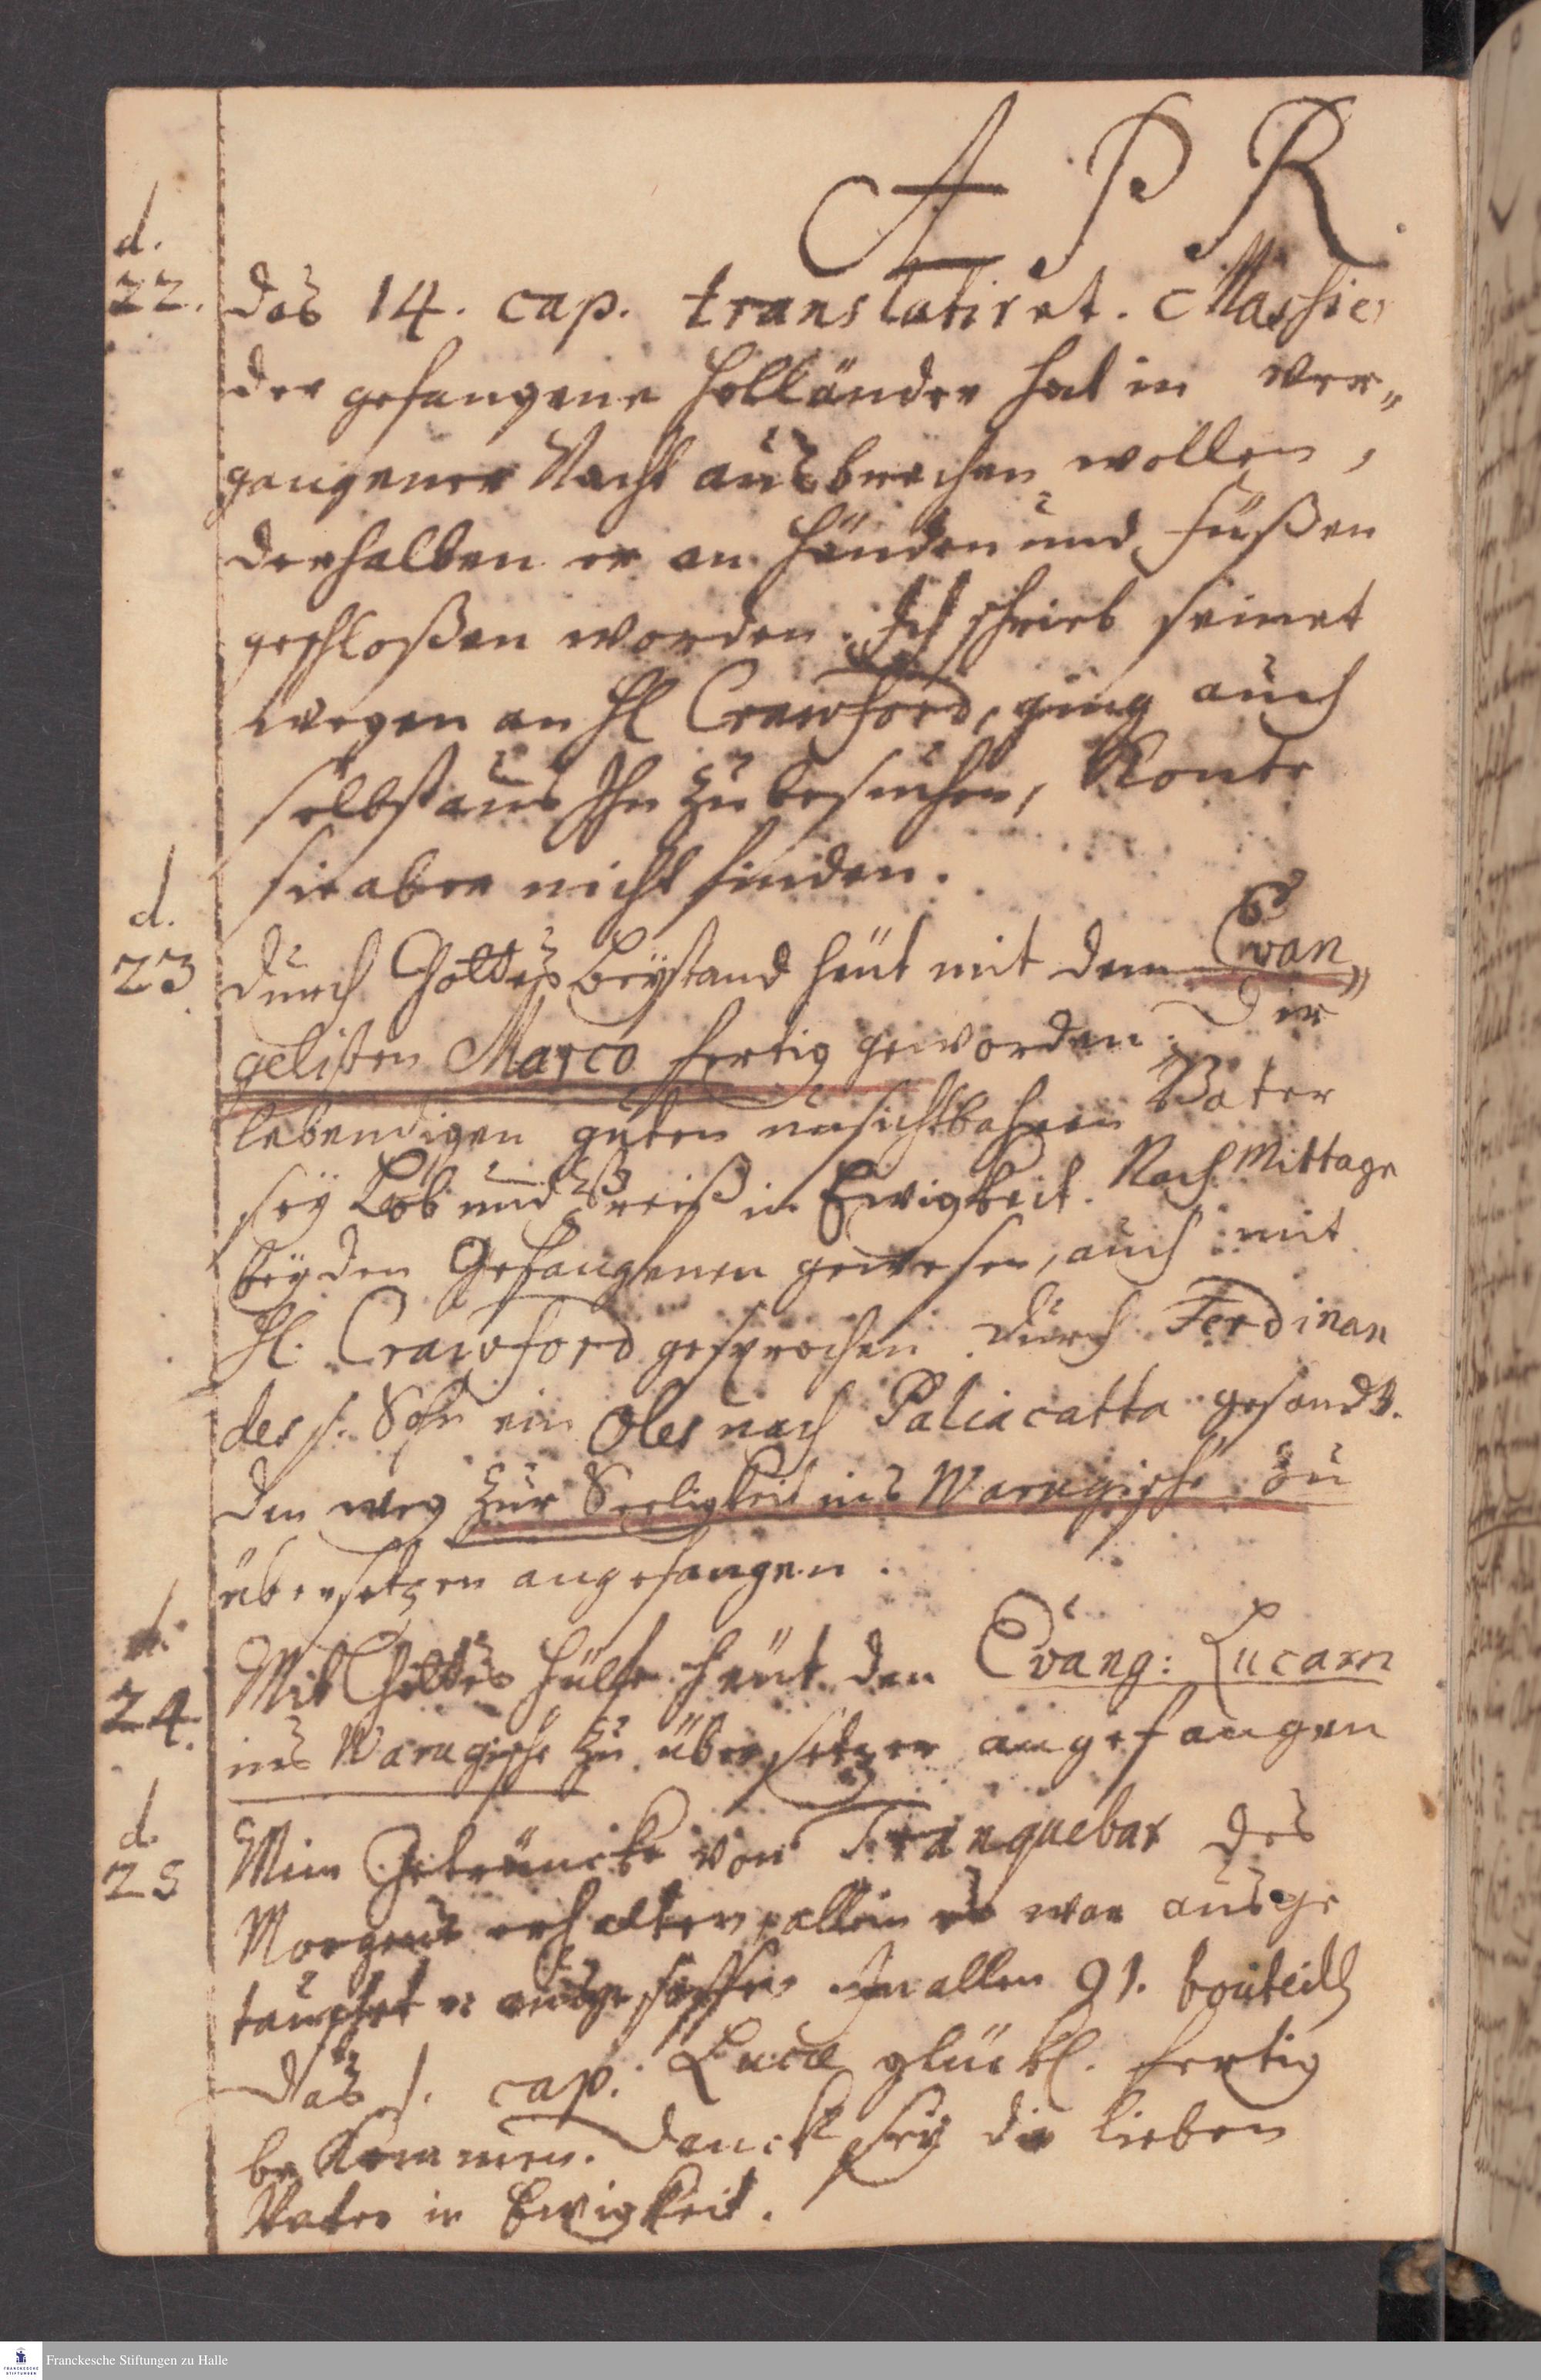 A P R.
d.
22. das 14. cap. translatiret. Massie,
der gefangene Holländer hat in ver„
gangener Nacht ausbrechen wollen,
derhalben er an Händen und Füßen
geschloßen worden. Ich schrieb seinet
wegen an H. Crawford, ging auch
selbst aus Ihn zu besuchen, Konte
sie aber nicht finden.
d.
23. durch Gottes Beystand heüt mit dem Evan„
gelisten Marco fertig geworden. Dir
lebendigen guten unsichtbahren Vater
sey Lob und Preiß in Ewigkeit. Nach Mittage
bey den Gefangenen gewesen, auch mit
H. Crawford gesprochen. durch Ferdinan
des s. Sohn ein Oles nach Paliacatta gesandt.
den weg zur Seeligkeit ins Warugische zu
übersetzen angefangen.
d.
24. Mit Gottes Hülfe heüt den Evang: Lucam
ins Warugische zu übersetzen angefangen
d.
25 Mein Geträncke von Tranquebar des
Morgens erhalten, allein es war ausge
tauschet u. ausgesoffen In allen 91. bouteill
das 1. cap. Lucæ glückl. fertig
bekommen. Danck sey die lieben
Vater in Ewigkeit.
Franckesche Stiftungen zu Halle